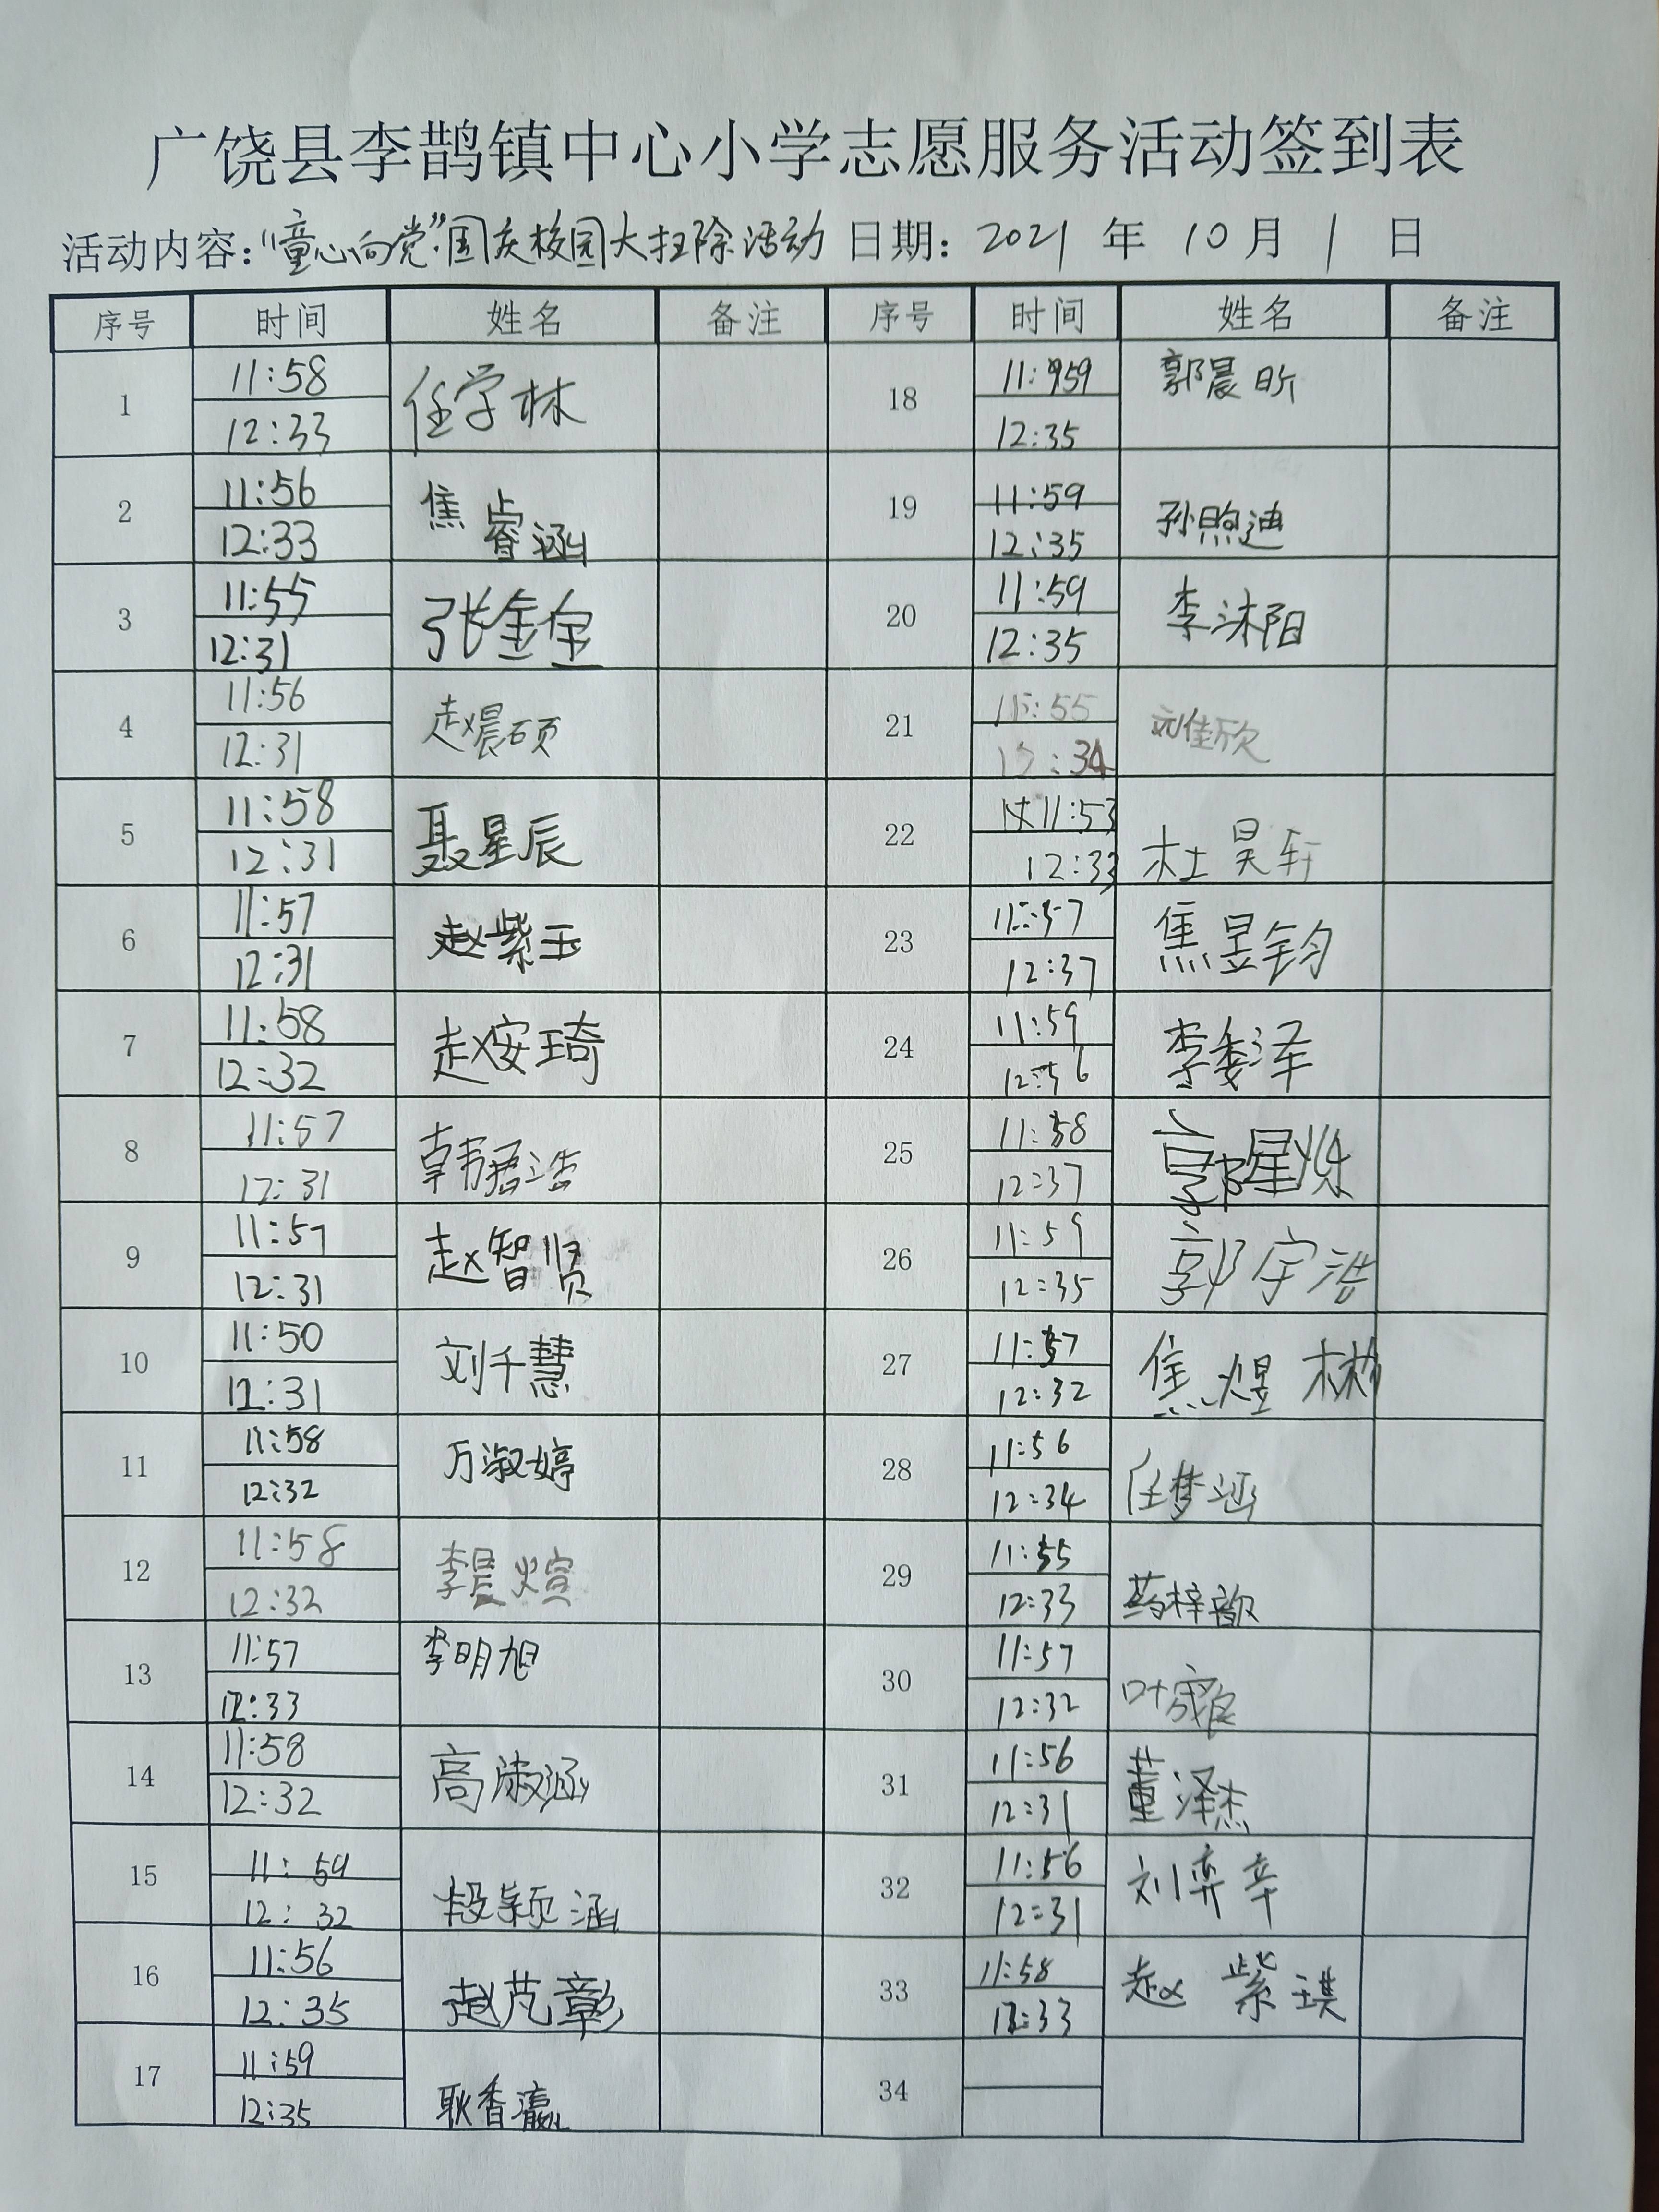 广饶县李鹊镇中心小学志愿服务活动签到表
活动内容：“童心向党”国庆校园大扫除活动 日期：2021 年 10 月 1 日
序号 时间 姓名 备注 序号 时间 姓名 备注
1 11:58 12:33 任学林 18 11:59 12:35 郭晨昕
2 11:56 12:33 焦睿涵 19 11:59 12:35 孙煦迪
3 11:55 12:31 张金宝 20 11:59 12:35 李沐阳
4 11:56 12:31 赵晨硕 21 11:55 12:34 刘佳欣
5 11:58 12:31 聂星辰 22 11:53 12:33 杜昊轩
6 11:57 12:31 赵紫玉 23 11:57 12:37 焦昱钧
7 11:58 12:32 赵安琦 24 11:59 12:56 李泽
8 11:57 12:31 韩君浩 25 11:58 12:37 郭星烁
9 11:57 12:31 赵智贤 26 11:59 12:35 郭宇浩
10 11:50 12:31 刘千慧 27 11:57 12:32 焦煜彬
11 11:58 12:32 万淑婷 28 11:56 12:34 任梦涵
12 11:58 12:32 李晨煊 29 11:55 12:33 梓歆
13 11:57 12:33 李明旭 30 11:57 12:32 叶
14 11:58 12:32 高淑涵 31 11:56 12:31 董泽杰
15 11:59 12:32 段颖涵 32 11:56 12:31 刘弈辛
16 11:56 12:35 赵芃彰 33 11:58 12:33 赵紫琪
17 11:59 12:35 耿香瀛 34